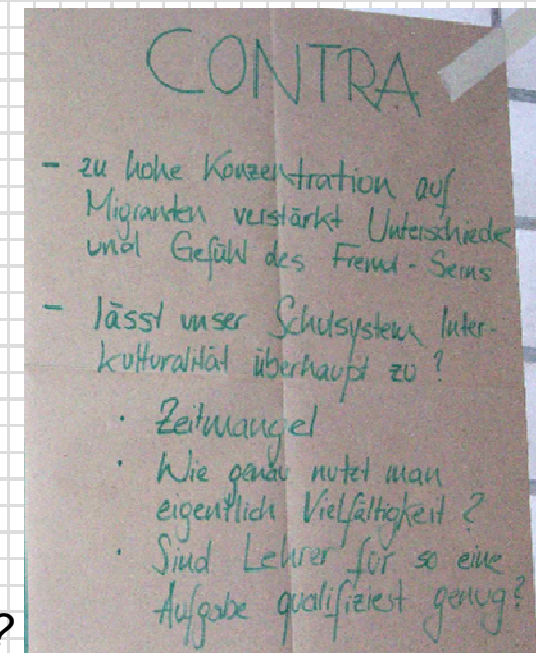 CONTRA
- zu hohe Konzentration auf
Migranten verstärkt Unterschiede
und Gefühl des Fremd-Seins
- lässt unser Schulsystem Inter-
kulturalität überhaupt zu?
· Zeitmangel
· Wie genau nutzt man
eigentlich Vielfältigkeit?
· Sind Lehrer für so eine
Aufgabe qualifiziert genug?
?